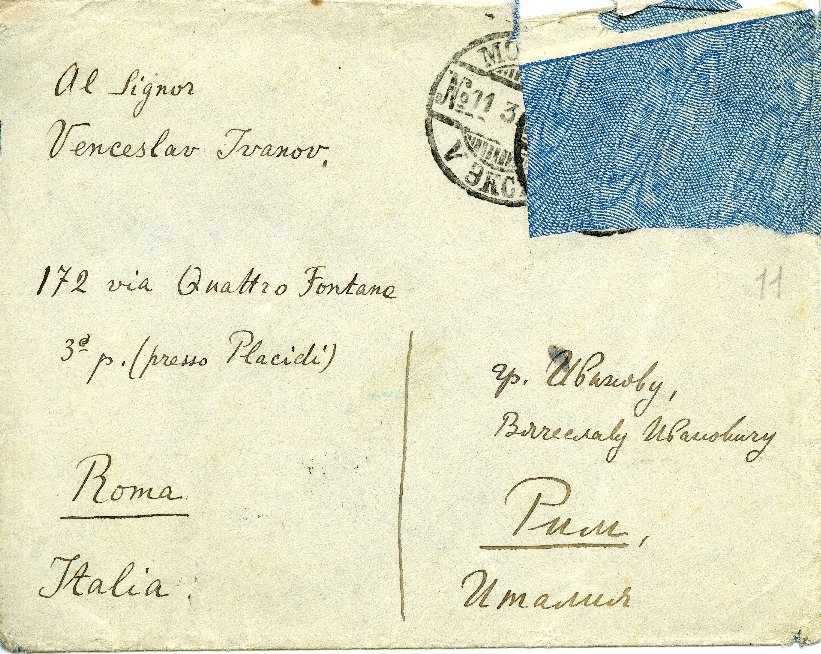 Al Signor
Venceslav Ivanov.
172 via Quattro Fontane
3º p. (presso Placidi)
Roma
Italia
гр. Иванову,
Вячеславу Ивановичу
Рим,
Италия
МО
№11 3
V ЭКС
11